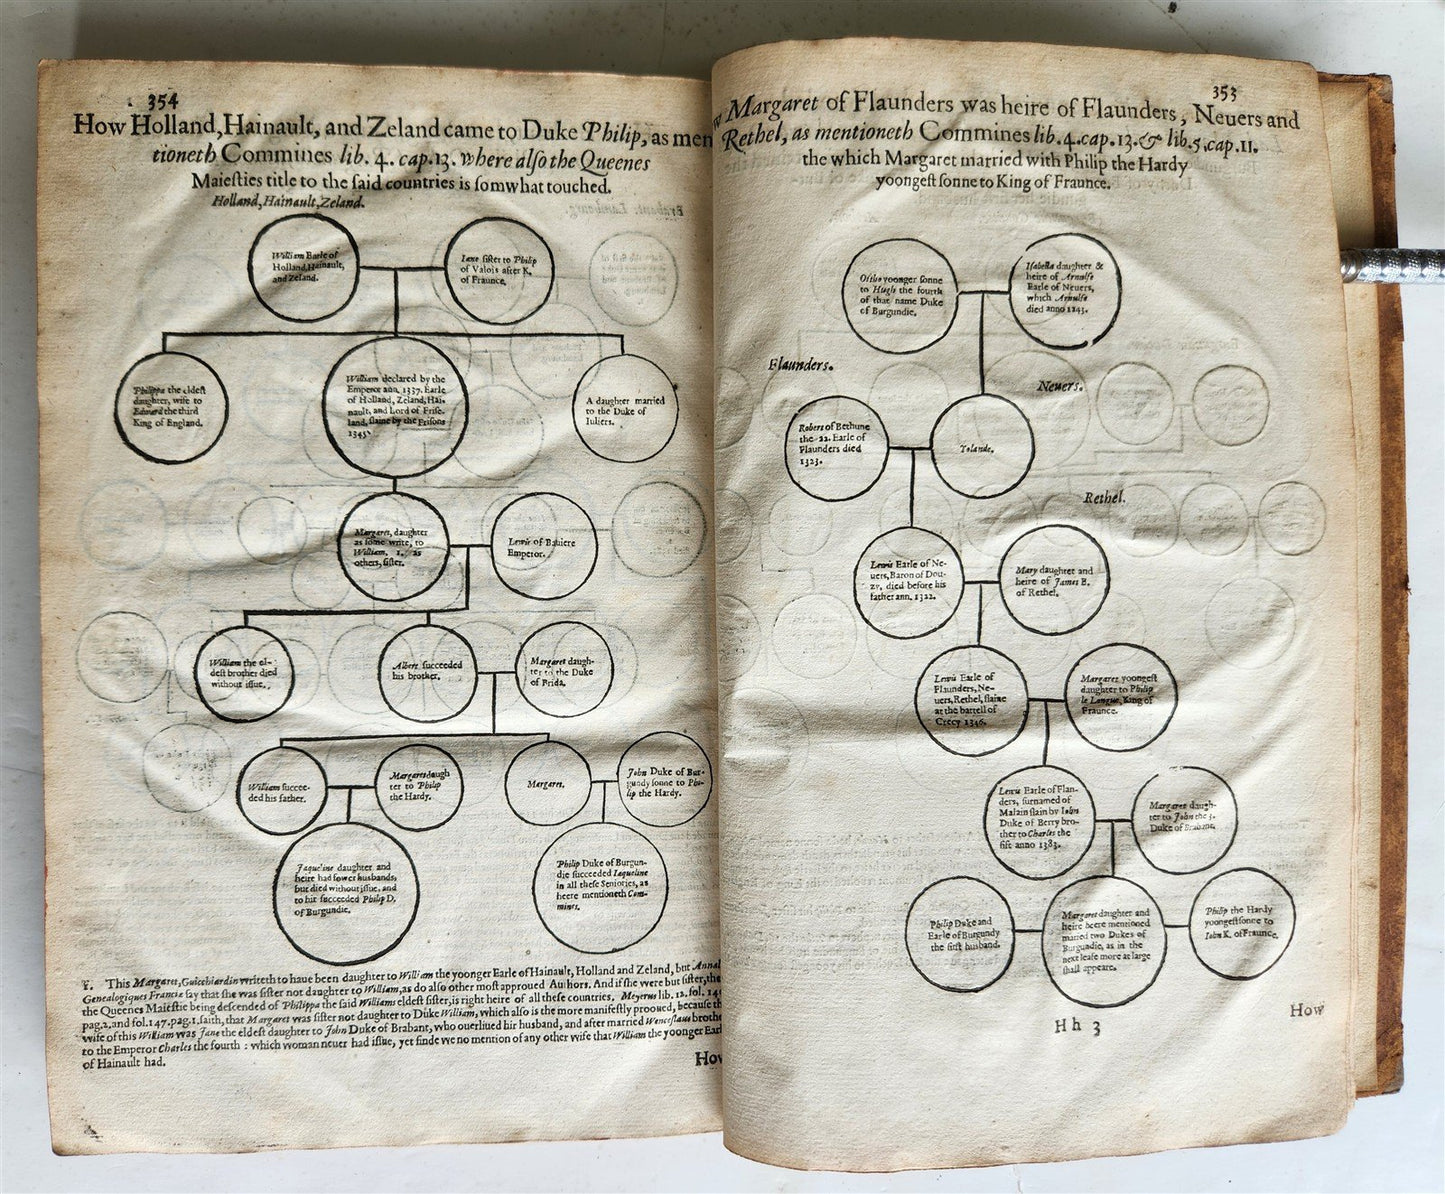 354
How Holland, Hainault, and Zeland came to Duke Philip, as men
tioneth Commines lib. 4. cap. 13. where alſo the Queenes
Maieſties title to the ſaid countries is ſomwhat touched.
Holland, Hainault, Zeland.
William Earle of
Holland, Hainault,
and Zeland.
Iane ſiſter to Philip
of Valois after K.
of Fraunce.
Philippa the eldeſt
daughter, wife to
Edward the third
King of England.
William declared by the
Emperor ann. 1337. Earle
of Holland, Zeland, Hai-
nault, and Lord of Friſe-
land, ſlaine by the Friſons
1345.
A daughter married
to the Duke of
Iuliers.
Margaret, daughter
as ſome write, to
William, 1. as
others, ſiſter.
Lewis of Bauiere
Emperor.
William the el-
deſt brother died
without iſſue.
Albert ſucceeded
his brother.
Margaret daugh-
ter to the Duke
of Brida.
William succee-
ded his father.
Margaret daugh
ter to Philip
the Hardy.
Margaret.
John Duke of Bur-
gundy ſonne to Phi-
lip the Hardy.
Jaqueline daughter and
heire had fower husbands,
but died without iſſue, and
to hir ſucceeded Philip D.
of Burgundie.
Philip Duke of Burgun-
die ſucceeded Iaqueline
in all theſe Seniories, as
heere mentioneth Com-
mines.
1. This Margaret, Guicchiardin writeth to haue been daughter to William the yonger Earle of Hainault, Holland and Zeland, but Annal
Genealogiques Francie ſay that ſhe was ſiſter not daughter to William, as do alſo other moſt approued Authors. And if ſhe were but ſiſter, the
the Queenes Maieſtie being deſcended of Philippa the ſaid Williams eldeſt ſiſter, is right heire of all theſe countries. Meyerus lib. 12. fol. 14
pag. 2, and fol. 147. pag. 1. ſaith, that Margaret was ſiſter not daughter to Duke William, which alſo is the more manifeſtly prooued, becauſe th
wife of this William was Jane the eldeſt daughter to John Duke of Brabant, who ouerliued hir husband, and after married Wenceſlaus brothe
to the Emperor Charles the fourth: which woman neuer had iſſue, yet finde we no mention of any other wife that William the yonger Earl
of Hainault had.
How
353
Margaret of Flaunders was heire of Flaunders, Neuers and
Rethel, as mentioneth Commines lib. 4. cap. 13. & lib. 5. cap. 11.
the which Margaret married with Philip the Hardy
yoongeſt ſonne to King of Fraunce.
Otho yoonger ſonne
to Hugh the fourth
of that name Duke
of Burgundie.
Iſabella daughter &
heire of Arnulfe
Earle of Neuers,
which Arnulfe
died anno 1243.
Flaunders.
Neuers.
Robert of Bethune
the 22. Earle of
Flaunders died
1323.
Yolande.
Rethel.
Lewis Earle of Ne-
uers, Baron of Dou-
zy, died before his
father ann. 1322.
Mary daughter and
heire of James E.
of Rethel.
Lewis Earle of
Flaunders, Ne-
uers, Rethel, ſlaine
at the battell of
Crecy 1346.
Margaret yoongeſt
daughter to Philip
le Longue, King of
Fraunce.
Lewis Earle of Flan-
ders, ſurnamed of
Malain ſlain by Iohn
Duke of Berry bro-
ther to Charles the
fift anno 1383.
Margaret daugh-
ter to John the 3.
Duke of Brabant.
Philip Duke and
Earle of Burgundy
the firſt husband.
Margaret daughter and
heire heere mentioned
maried two Dukes of
Burgundie, as in the
next leafe more at large
ſhall appeare.
Philip the Hardy
yoongeſt ſonne to
Iohn K. of Fraunce.
Hh 3
How